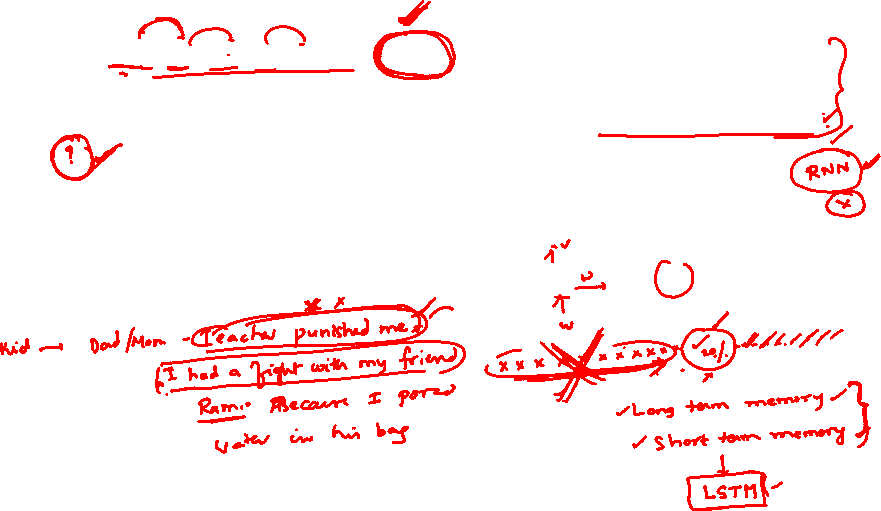 ?
RNN
x
w
w
Kid → Dad/Mom - Teacher punished me
I had a fight with my friend
Ram. Because I pored
water in his bag
x x x x x x x x x 20%
Long term memory
Short term memory
LSTM